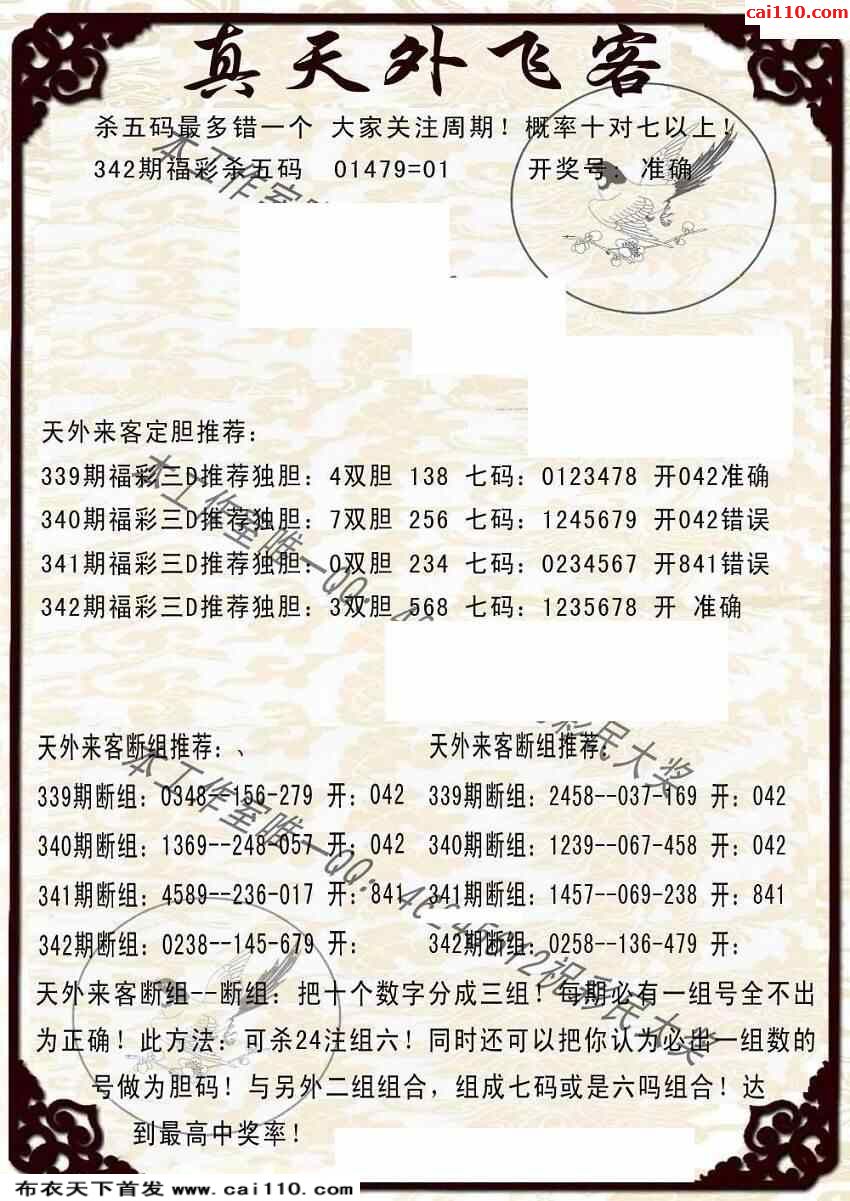 cai110.com
真天外飞客
杀五码最多错一个 大家关注周期！概率十对七以上！
342期福彩杀五码 01479=01 开奖号：准确
天外来客定胆推荐：
339期福彩三D推荐独胆：4双胆 138 七码：0123478 开042准确
340期福彩三D推荐独胆：7双胆 256 七码：1245679 开042错误
341期福彩三D推荐独胆：0双胆 234 七码：0234567 开841错误
342期福彩三D推荐独胆：3双胆 568 七码：1235678 开 准确
天外来客断组推荐：、 天外来客断组推荐：
339期断组：0348--156-279 开：042 339期断组：2458--037-169 开：042
340期断组：1369--248-057 开：042 340期断组：1239--067-458 开：042
341期断组：4589--236-017 开：841 341期断组：1457--069-238 开：841
342期断组：0238--145-679 开： 342期断组：0258--136-479 开：
天外来客断组--断组：把十个数字分成三组！每期必有一组号全不出
为正确！此方法：可杀24注组六！同时还可以把你认为必出一组数的
号做为胆码！与另外二组组合，组成七码或是六吗组合！达
到最高中奖率！
本工作室
本工作室唯一QQ：
彩民大奖
本工作室唯一QQ：
祝彩民大奖
布衣天下首发 www.cai110.com